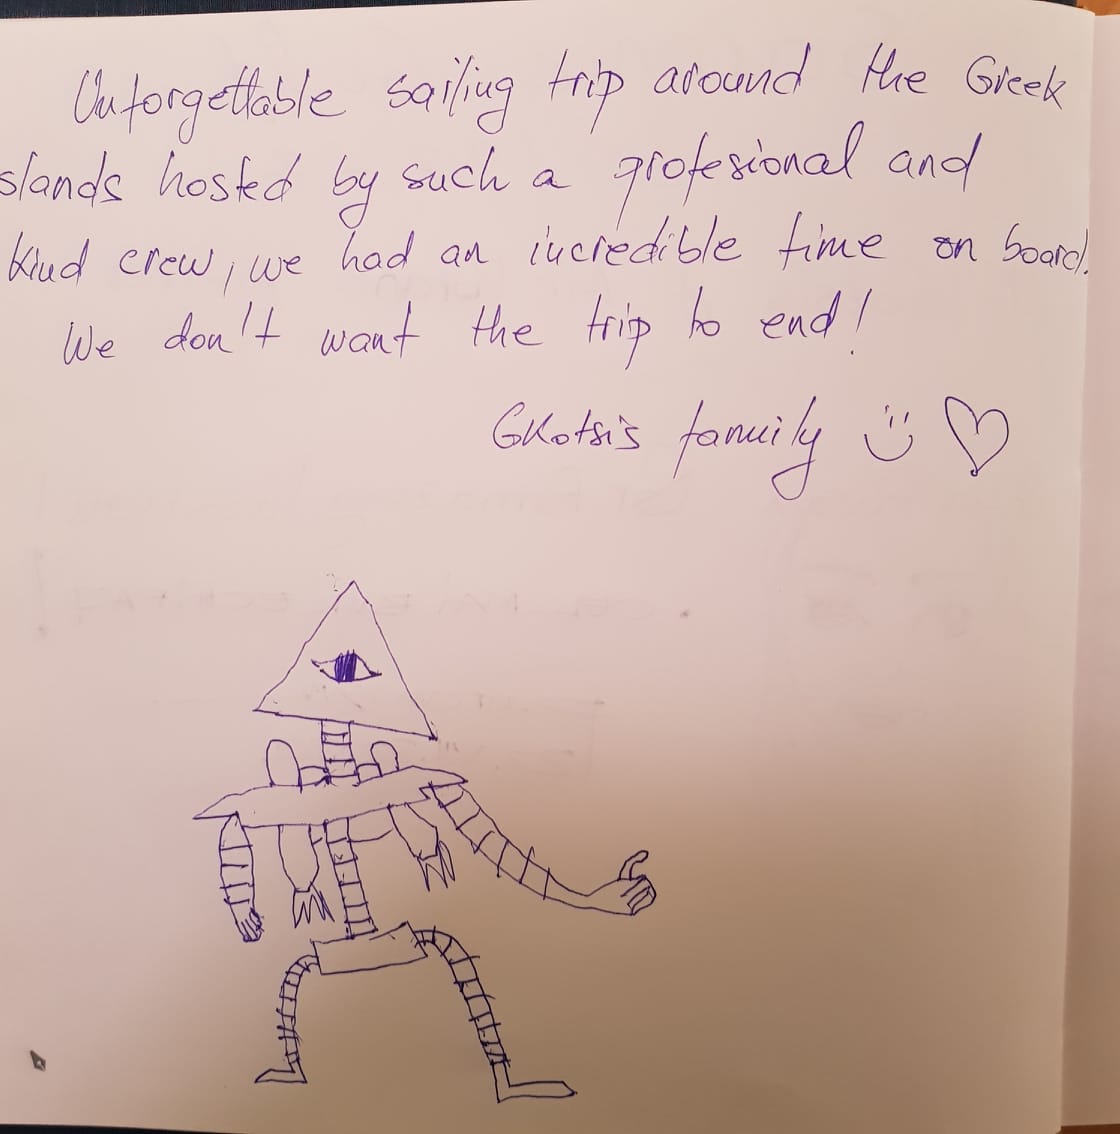 Unforgettable sailing trip around the Greek
slands hosted by such a profesional and
kind crew, we had an incredible time on board.
We don't want the trip to end!
Gkotsis family